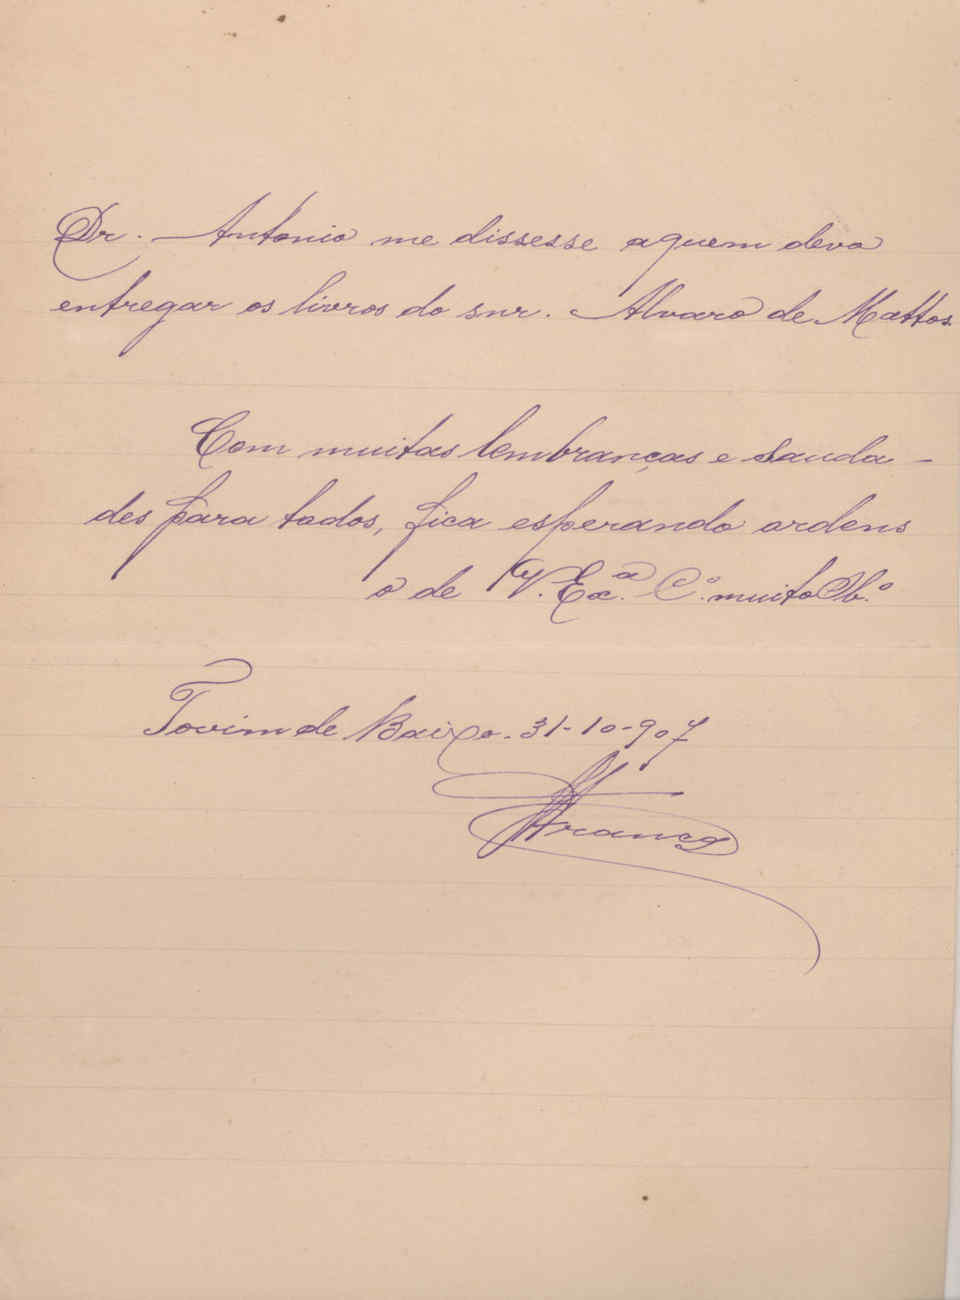 Dr. Antonio me dissesse aquem devo
entregar os livros do snr. Alvaro de Mattos.
Com muitas lembranças e sauda-
des para todos, fica esperando ordens
o de V. Exª. C.º muito Ob.º
Tovim de Baixo. 31-10-907
França